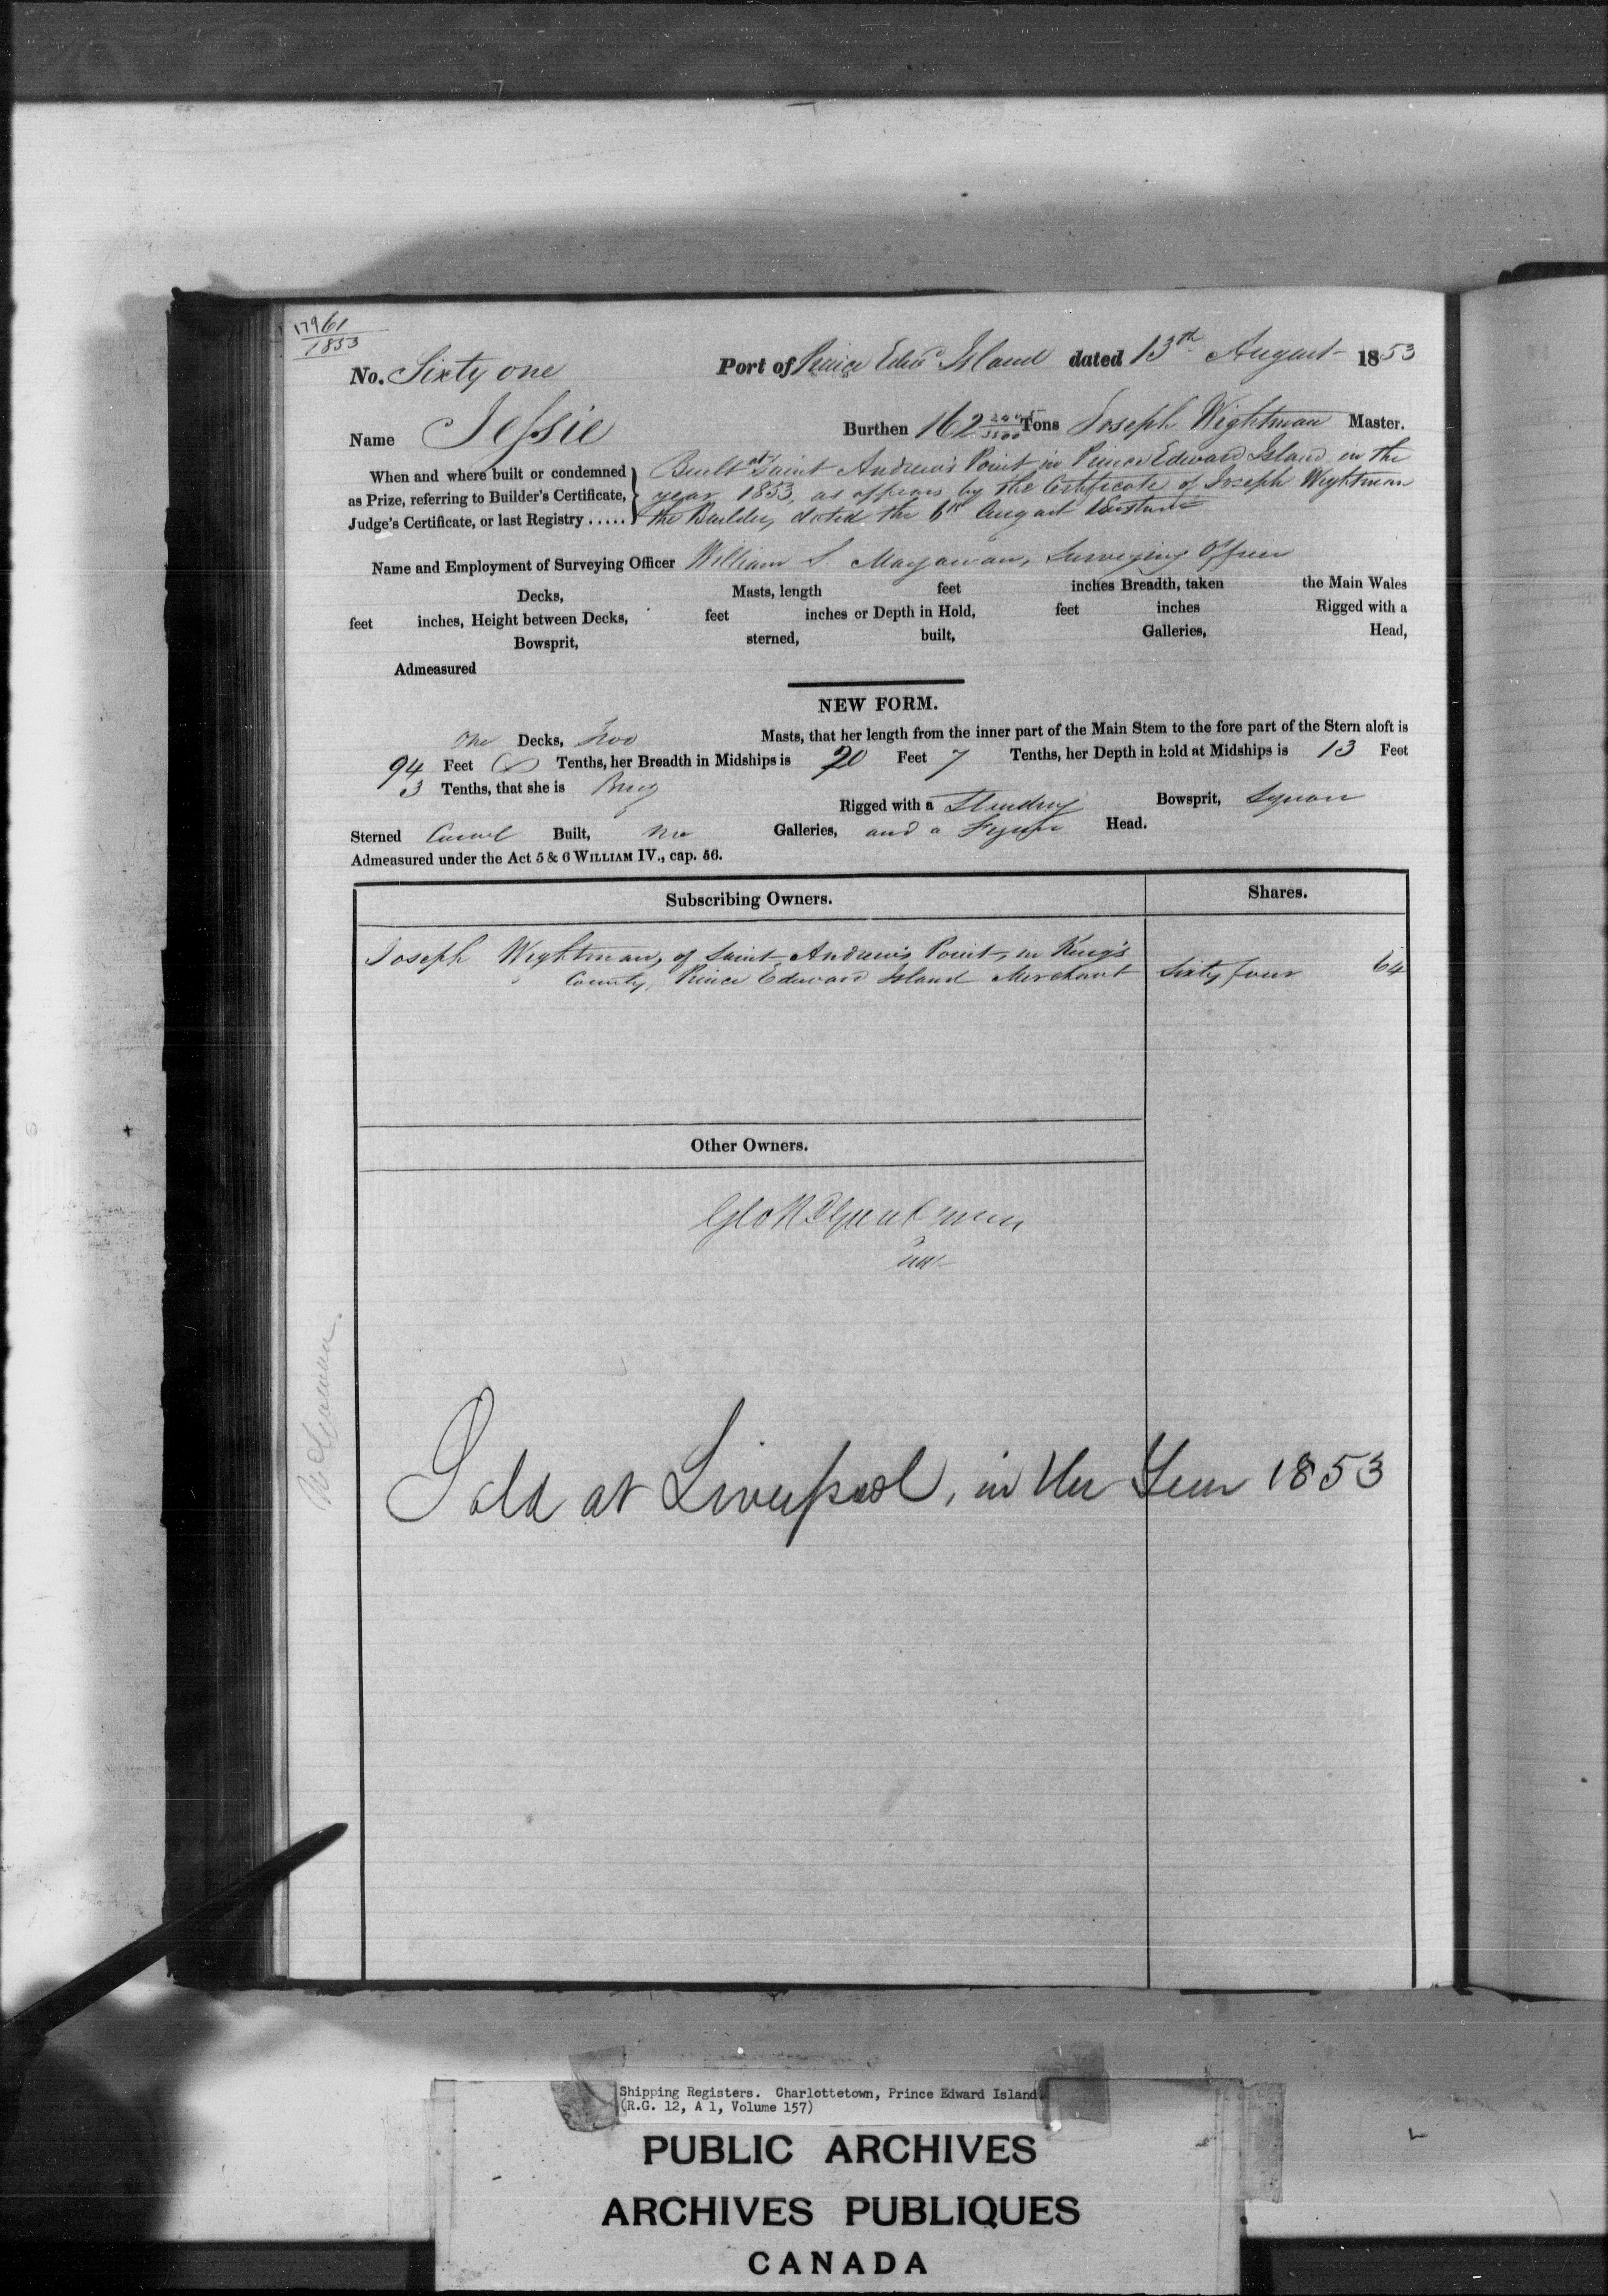 61
1853
No. Sixty one Port of Prince Edwd Island dated 13th August 1853
Name Jessie Burthen 162 Tons Joseph Wightman Master.
When and where built or condemned
as Prize, referring to Builder's Certificate,
Judge's Certificate, or last Registry .....
Built at Saint Andrew's Point in Prince Edward Island in the
year 1853, as appears by the Certificate of Joseph Wightman
the Builder, dated the 6th August Instant
Name and Employment of Surveying Officer William S. Surveying Officer
Decks, Masts, length feet inches Breadth, taken the Main Wales
feet inches, Height between Decks, feet inches or Depth in Hold, feet inches Rigged with a
Bowsprit, sterned, built, Galleries, Head,
Admeasured
NEW FORM.
One Decks, Two Masts, that her length from the inner part of the Main Stem to the fore part of the Stern aloft is
94 Feet Tenths, her Breadth in Midships is 20 Feet 7 Tenths, her Depth in hold at Midships is 13 Feet
3 Tenths, that she is Brig Rigged with a Standing Bowsprit, Square
Sterned Carvel Built, no Galleries, and a Figure Head.
Admeasured under the Act 5 & 6 WILLIAM IV., cap. 56.
Subscribing Owners. Shares.
Joseph Wightman, of Saint Andrew's Point, in King's
County, Prince Edward Island Merchant Sixty four 64
Other Owners.
Sold at Liverpool, in the Year 1853
Shipping Registers. Charlottetown, Prince Edward Island
(R.G. 12, A 1, Volume 157)
PUBLIC ARCHIVES
ARCHIVES PUBLIQUES
CANADA